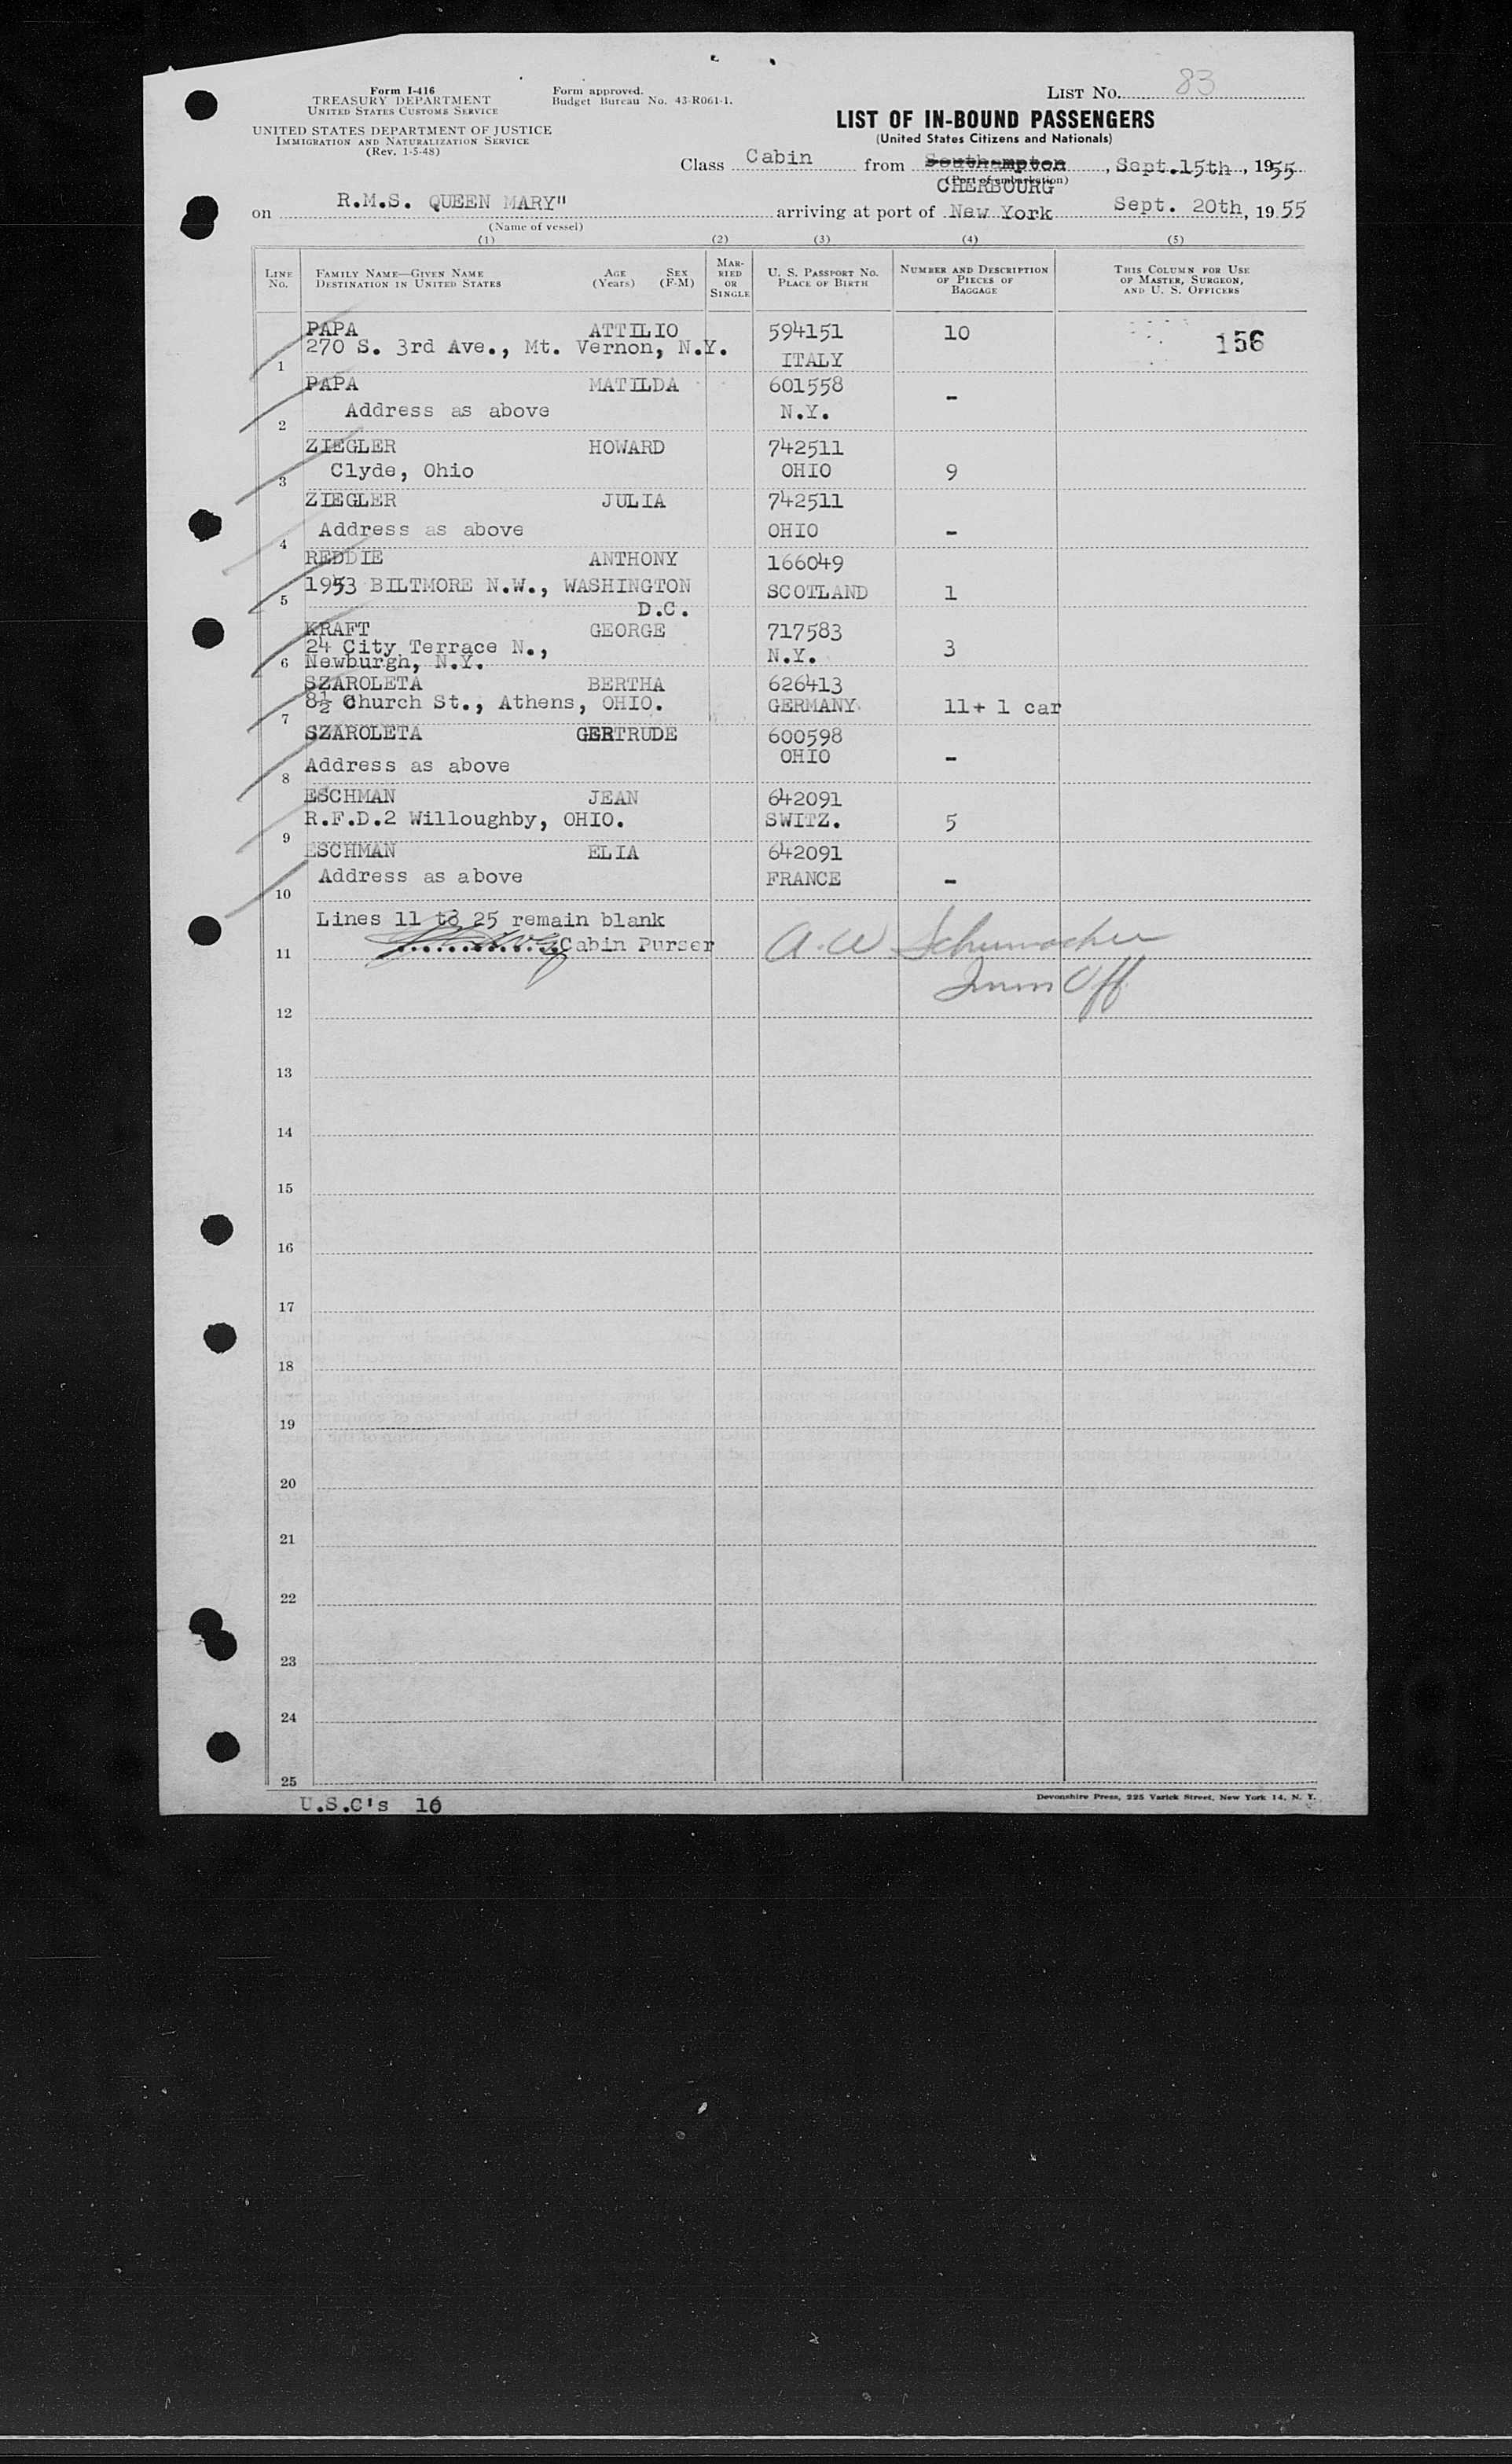 Form I-416
TREASURY DEPARTMENT
UNITED STATES CUSTOMS SERVICE
UNITED STATES DEPARTMENT OF JUSTICE
IMMIGRATION AND NATURALIZATION SERVICE
(Rev. 1-5-48)
Form approved.
Budget Bureau No. 43-R061-1.
LIST NO. 83
LIST OF IN-BOUND PASSENGERS
(United States Citizens and Nationals)
Class Cabin from Southampton, Sept.15th, 1955
(Port of embarkation)
CHERBOURG
on R.M.S. QUEEN MARY" arriving at port of New York Sept. 20th, 1955
(Name of vessel)
(1) (2) (3) (4) (5)
LINE NO. FAMILY NAME—GIVEN NAME DESTINATION IN UNITED STATES AGE (Years) SEX (F-M) MARRIED OR SINGLE U. S. PASSPORT NO. PLACE OF BIRTH NUMBER AND DESCRIPTION OF PIECES OF BAGGAGE THIS COLUMN FOR USE OF MASTER, SURGEON, AND U. S. OFFICERS
PAPA ATTILIO 594151 10 156
270 S. 3rd Ave., Mt. Vernon, N.Y.
1 ITALY
PAPA MATILDA 601558 -
Address as above N.Y.
2
ZIEGLER HOWARD 742511
Clyde, Ohio OHIO 9
3
ZIEGLER JULIA 742511
Address as above OHIO -
4
REDDIE ANTHONY 166049
1953 BILTMORE N.W., WASHINGTON SCOTLAND 1
5 D.C.
KRAFT GEORGE 717583
24 City Terrace N., N.Y. 3
6 Newburgh, N.Y.
SZAROLETA BERTHA 626413
8½ Church St., Athens, OHIO. GERMANY 11+ 1 car
7
SZAROLETA GERTRUDE 600598
Address as above OHIO -
8
ESCHMAN JEAN 642091
R.F.D.2 Willoughby, OHIO. SWITZ. 5
9
ESCHMAN ELIA 642091
Address as above FRANCE -
10
Lines 11 to 25 remain blank
11 Cabin Purser A. W. Schumacher
Imm Off
12
13
14
15
16
17
18
19
20
21
22
23
24
25
U.S.C's 10
Devonshire Press, 225 Varick Street, New York 14, N. Y.